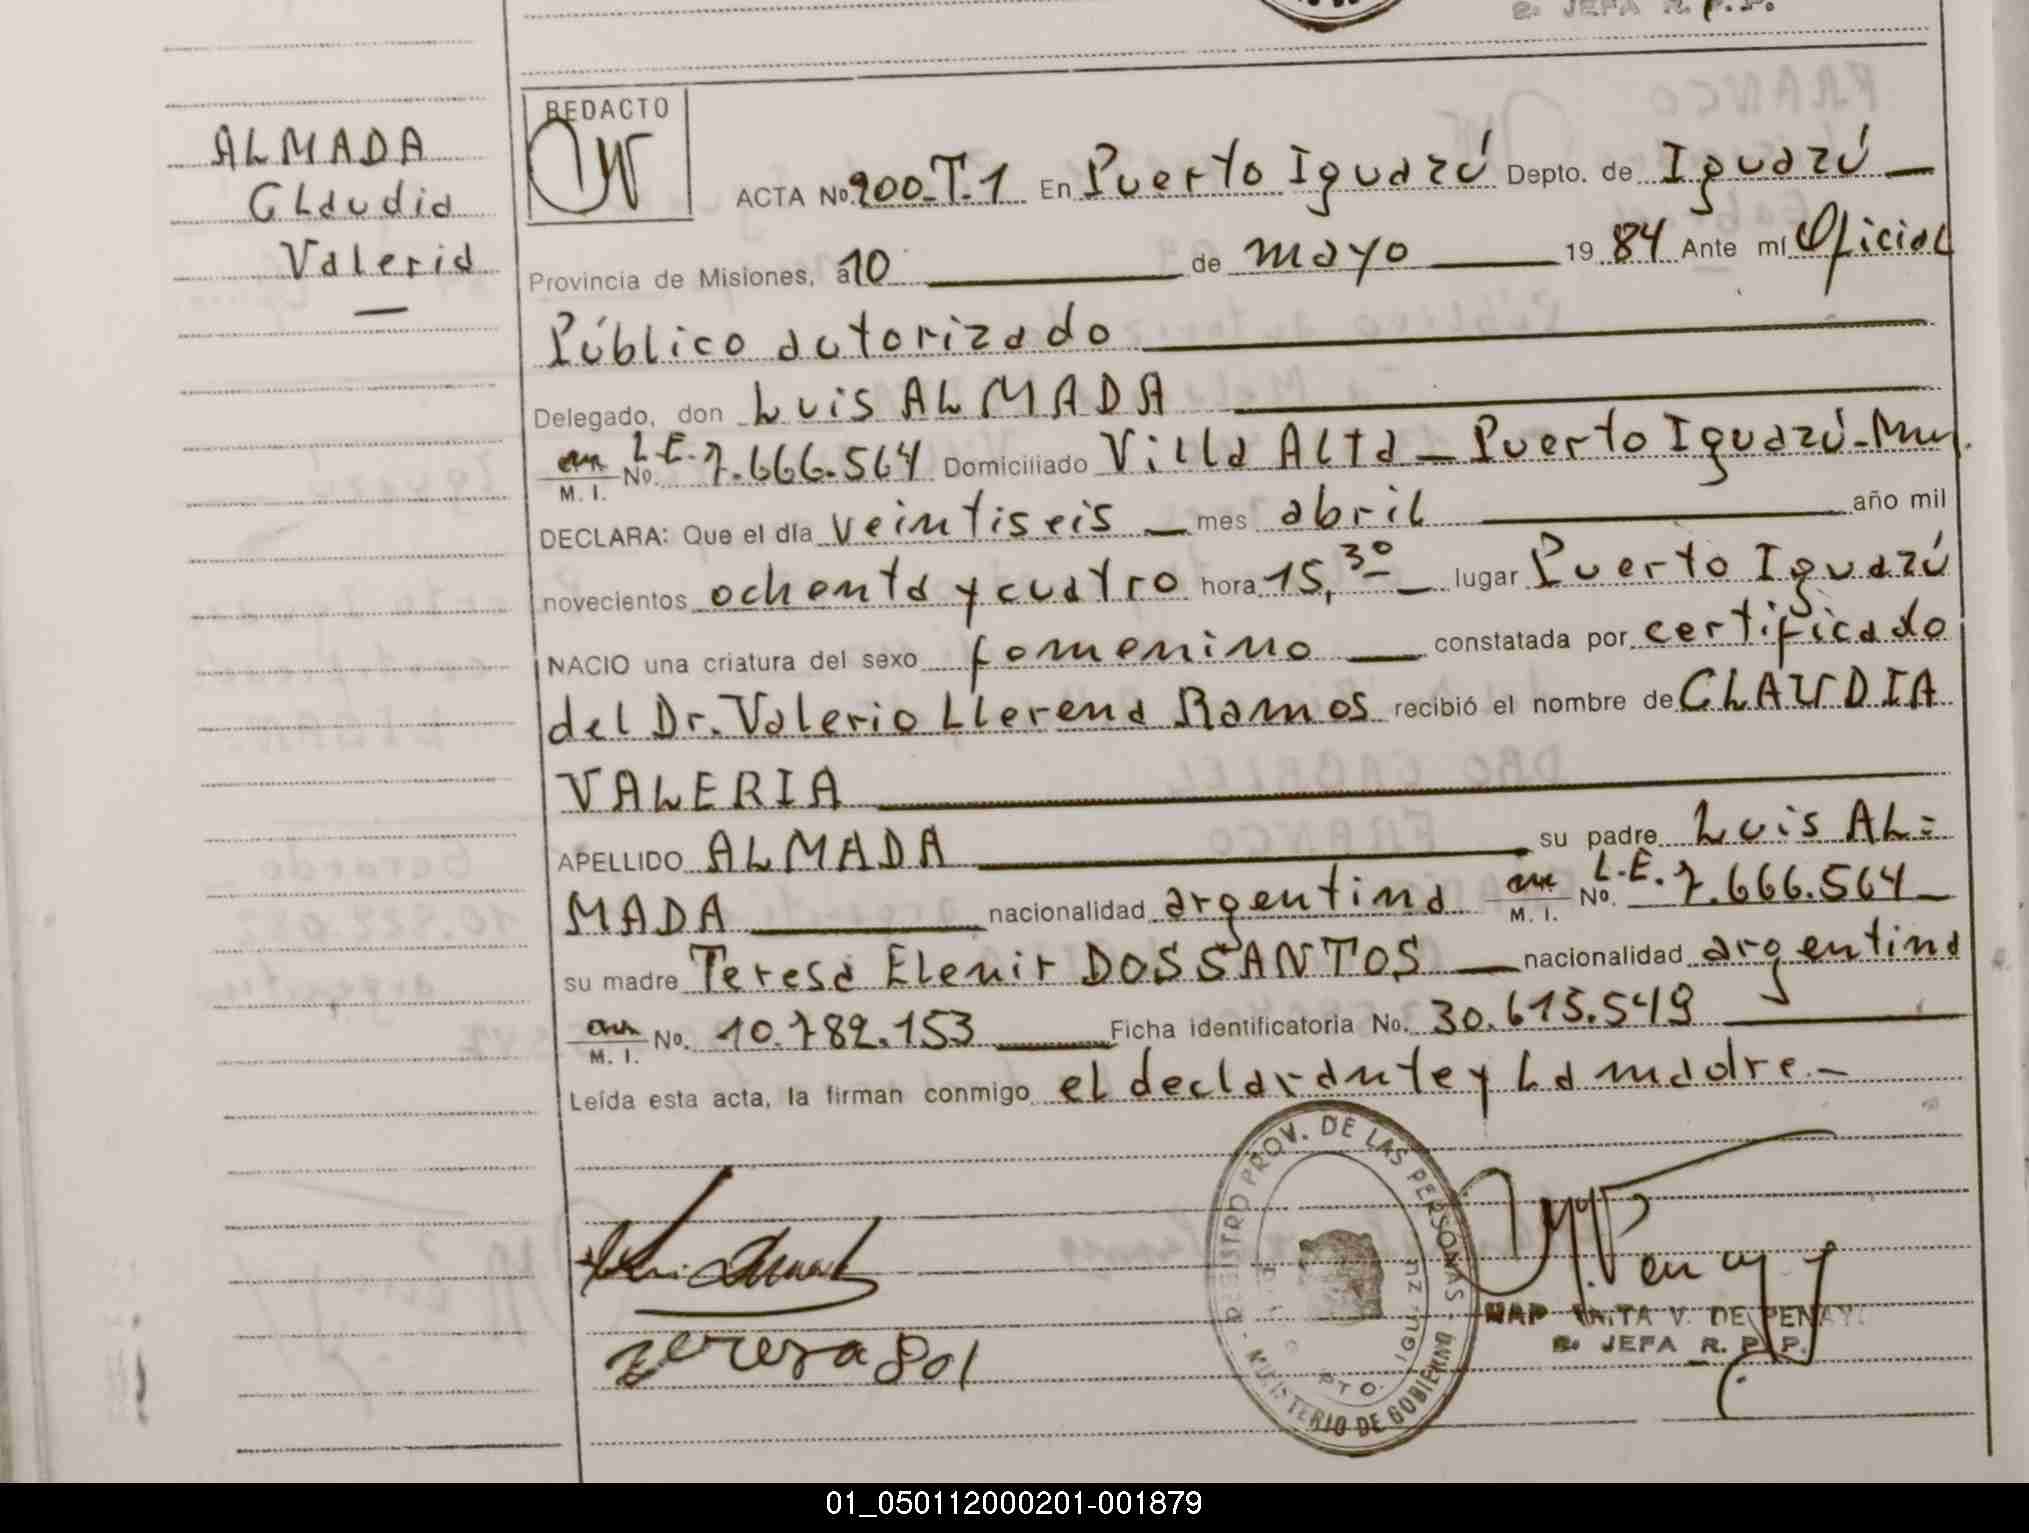 B. JEFA R. P. P.
ALMADA
Claudia
Valeria
REDACTO
ACTA No. 200-T.1 En Puerto Iguazú Depto. de Iguazú
Provincia de Misiones, a 10 de mayo 19 84 Ante mí Oficial
Público autorizado
Delegado, don Luis ALMADA
M. I. No. L.E. 7.666.564 Domiciliado Villa Alta - Puerto Iguazú - Mnes.
DECLARA: Que el día veintiseis mes abril año mil
novecientos ochenta y cuatro hora 15,30 lugar Puerto Iguazú
NACIO una criatura del sexo femenino constatada por certificado
del Dr. Valerio Llerena Ramos recibió el nombre de CLAUDIA
VALERIA
APELLIDO ALMADA su padre Luis AL=
MADA nacionalidad argentina M. I. No. L.E. 7.666.564
su madre Teresa Elenir DOS SANTOS nacionalidad argentina
M. I. No. 10.782.153 Ficha identificatoria No. 30.615.549
Leída esta acta, la firman conmigo el declarante y La madre.-
REGISTRO PROV. DE LAS PERSONAS
MINISTERIO DE GOBIERNO
DPTO.
V. DE PENAY
B. JEFA R. P. P.
01_050112000201-001879